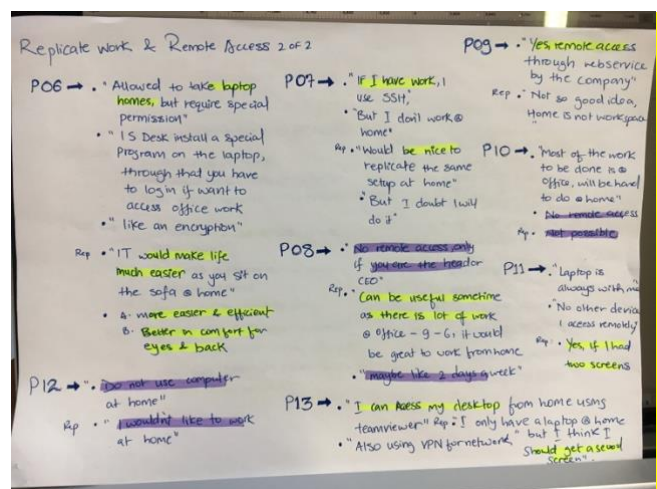 Replicate work & Remote Access 2 of 2
P06 → • "Allowed to take laptop
homes, but require special
permission"
• "IS Desk install a special
Program on the laptop,
through that you have
to login if want to
access office work
• " like an encryption"
Rep • "IT would make life
much easier as you sit on
the sofa @ home"
• & more easier & efficient
8. Better in comfort for
eyes & back
P12 → ". Do not use computer
at home"
Rep • " I wouldn't like to work
at home"
P07 → • "If I have work, I
use SSH,"
• "But I don't work @
home"
Rep • "Would be nice to
replicate the same
setup at home"
• "But I doubt I will
do it"
P08 → • "No remote access only
if you are the header
CEO"
Rep. • "Can be useful sometime
as there is lot of work
@ office - 9-6, it would
be great to work from home
• "maybe like 2 days a week"
P13 → • "I can Acess my desktop from home using
teamviewer" Rep • I only have a laptop @ home
• "Also using VPN for network" " but I think I
should get a second
screen".
P09 → • "Yes, remote access
through webservice
by the company"
Rep • "Not so good idea,
Home is not workspace
P10 → • "Most of the work
to be done is @
office, will be hard
to do @ home"
• No remote access
Rp. • Not possible
P11 → • "Laptop is
always with me
• "No other device
I access remotely"
Rep • Yes, if I had
two screens